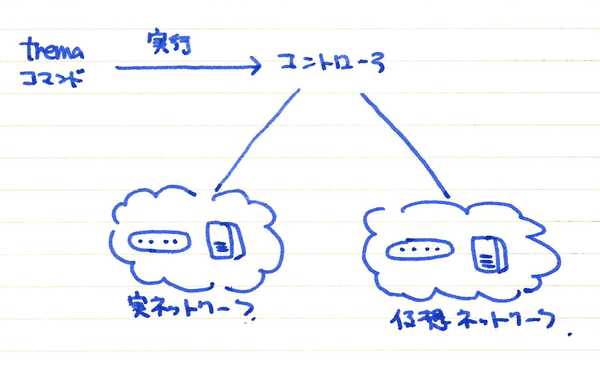 trema
コマンド
実行
コントローラ
実ネットワーク
仮想ネットワーク